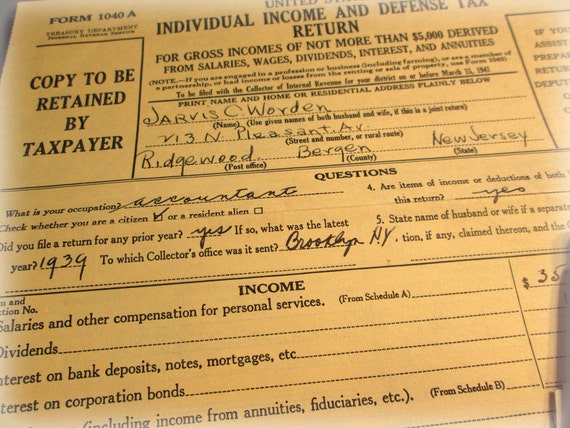 FORM 1040 A
UNITED
TREASURY DEPARTMENT
INTERNAL REVENUE SERVICE
INDIVIDUAL INCOME AND DEFENSE TAX
RETURN
FOR GROSS INCOMES OF NOT MORE THAN $5,000 DERIVED
FROM SALARIES, WAGES, DIVIDENDS, INTEREST, AND ANNUITIES
(NOTE.—If you are engaged in a profession or business (including farming), or are a member of
a partnership, or had income or losses from the renting or sale of property, use Form 1040)
To be filed with the Collector of Internal Revenue for your district on or before March 15, 1941
PRINT NAME AND HOME OR RESIDENTIAL ADDRESS PLAINLY BELOW
COPY TO BE
RETAINED
BY
TAXPAYER
JARVIS O Worden
(Name) (Use given names of both husband and wife, if this is a joint return)
213 N. Pleasant Av.
(Street and number, or rural route)
Ridgewood Bergen New Jersey
(Post office) (County) (State)
IF
ASSIST
PREPA
RETUR
QUESTIONS
What is your occupation? accountant
Check whether you are a citizen ☑ or a resident alien ☐
Did you file a return for any prior year? yes If so, what was the latest
year? 1939 To which Collector's office was it sent? Brooklyn NY.
4. Are items of income or deductions of both
this return? yes
5. State name of husband or wife if a separate
tion, if any, claimed thereon, and the
INCOME
and
tion No.
Salaries and other compensation for personal services. (From Schedule A)
$ 35
Dividends
Interest on bank deposits, notes, mortgages, etc
Interest on corporation bonds
(including income from annuities, fiduciaries, etc.). (From Schedule B)